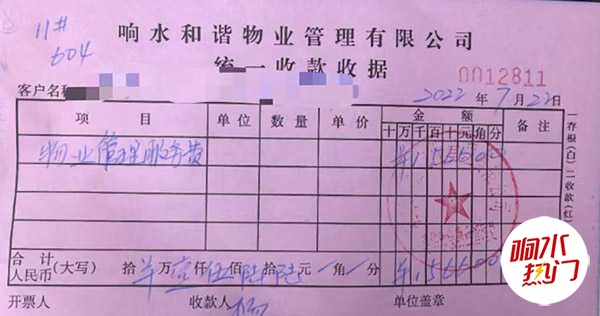 11#
604
响水和谐物业管理有限公司
统一收款收据
0012811
客户名称
2022年7月22日
项目 单位 数量 单价 金额 备注
十万千百十元角分
物业管理服务费 ¥156600
合计人民币(大写) 拾 万壹仟伍佰陆拾陆元 角 分 ¥156600
开票人 收款人 单位盖章
一存根(白)二收款(红)
响水热门